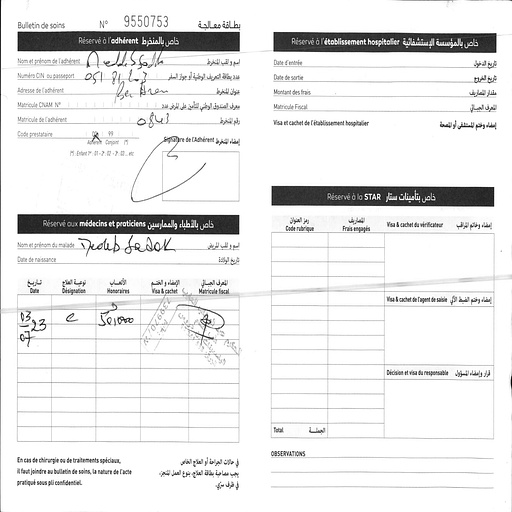 Bulletin de soins N° 9550753 بطاقة معالجة
Réservé à l'adhérent خاص بالمنخرط
Nom et prénom de l'adhérent اسم و لقب المنخرط
Numéro CIN ou passeport عدد بطاقة التعريف الوطنية أو جواز السفر
Adresse de l'adhérent عنوان المنخرط
Matricule CNAM N° معرف الصندوق الوطني للتأمين على المرض عدد
Matricule de l'adhérent 0843 رقم المنخرط
Code prestataire 99
Adhérent Conjoint (*)
Signature de l'Adhérent إمضاء المنخرط
(*) : Enfant 1er : 01 - 2e : 02 - 3e : 03... etc
Réservé aux médecins et praticiens خاص بالأطباء والممارسين
Nom et prénom du malade Sadok اسم و لقب المريض
Date de naissance تاريخ الولادة
تاريخ نوعية العلاج الأتعاب الإمضاء و الختم المعرف الجبائي
Date Désignation Honoraires Visa & cachet Matricule fiscal
03 07 23 C 50,000
En cas de chirurgie ou de traitements spéciaux,
il faut joindre au bulletin de soins, la nature de l'acte
pratiqué sous pli confidentiel.
في حالات الجراحة أو العلاج الخاص
يجب مصاحبة بطاقة العلاج، بنوع العمل المنجز،
في ظرف سري.
Réservé à l'établissement hospitalier خاص بالمؤسسة الإستشفائية
Date d'entrée تاريخ الدخول
Date de sortie تاريخ الخروج
Montant des frais مقدار المصاريف
Matricule Fiscal المعرف الجبائي
Visa et cachet de l'établissement hospitalier إمضاء وختم المستشفى أو المصحة
Réservé à la STAR خاص بتأمينات ستار
رمز العنوان المصاريف
Code rubrique Frais engagés
Visa & cachet du vérificateur إمضاء وخاتم المراقب
Visa & cachet de l'agent de saisie إمضاء وختم الضبط الآلي
Décision et visa du responsable قرار وإمضاء المسؤول
Total الجملة
OBSERVATIONS